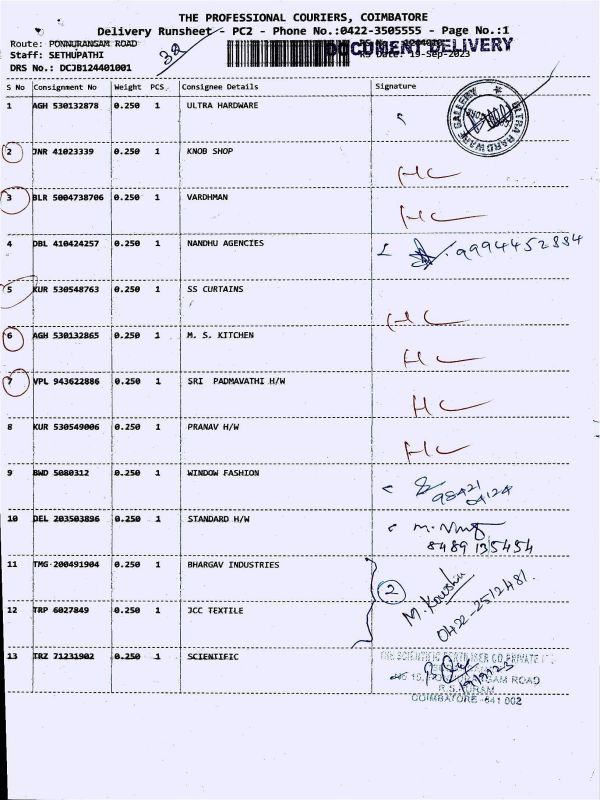 THE PROFESSIONAL COURIERS, COIMBATORE
Delivery Runsheet - PC2 - Phone No.:0422-3505555 - Page No.:1
Route: PONNURANGAM ROAD
DOCUMENT DELIVERY
Staff: SETHUPATHI
RS Date: 19-Sep-2023
DRS No.: DCJB124401001
S No Consignment No Weight PCS Consignee Details Signature
1 AGH 530132878 0.250 1 ULTRA HARDWARE
ULTRA HARDWARE GALLERY
2 JNR 41023339 0.250 1 KNOB SHOP HC
3 BLR 5004738706 0.250 1 VARDHMAN HC
4 DBL 410424257 0.250 1 NANDHU AGENCIES 9994452884
5 KUR 530548763 0.250 1 SS CURTAINS HC
6 AGH 530132865 0.250 1 M. S. KITCHEN HC
7 VPL 943622886 0.250 1 SRI PADMAVATHI H/W HC
8 KUR 530549006 0.250 1 PRANAV H/W HC
9 BWD 5080312 0.250 1 WINDOW FASHION
98421
04124
10 DEL 203503896 0.250 1 STANDARD H/W
8489 135454
11 TMG 200491904 0.250 1 BHARGAV INDUSTRIES
2
M. Kowshi
0422-2512481.
12 TRP 6027849 0.250 1 JCC TEXTILE
13 TRZ 71231902 0.250 1 SCIENTIFIC
THE SCIENTIFIC FERTILISER CO PRIVATE
ROAD
R.S. PURAM
COIMBATORE-641 002